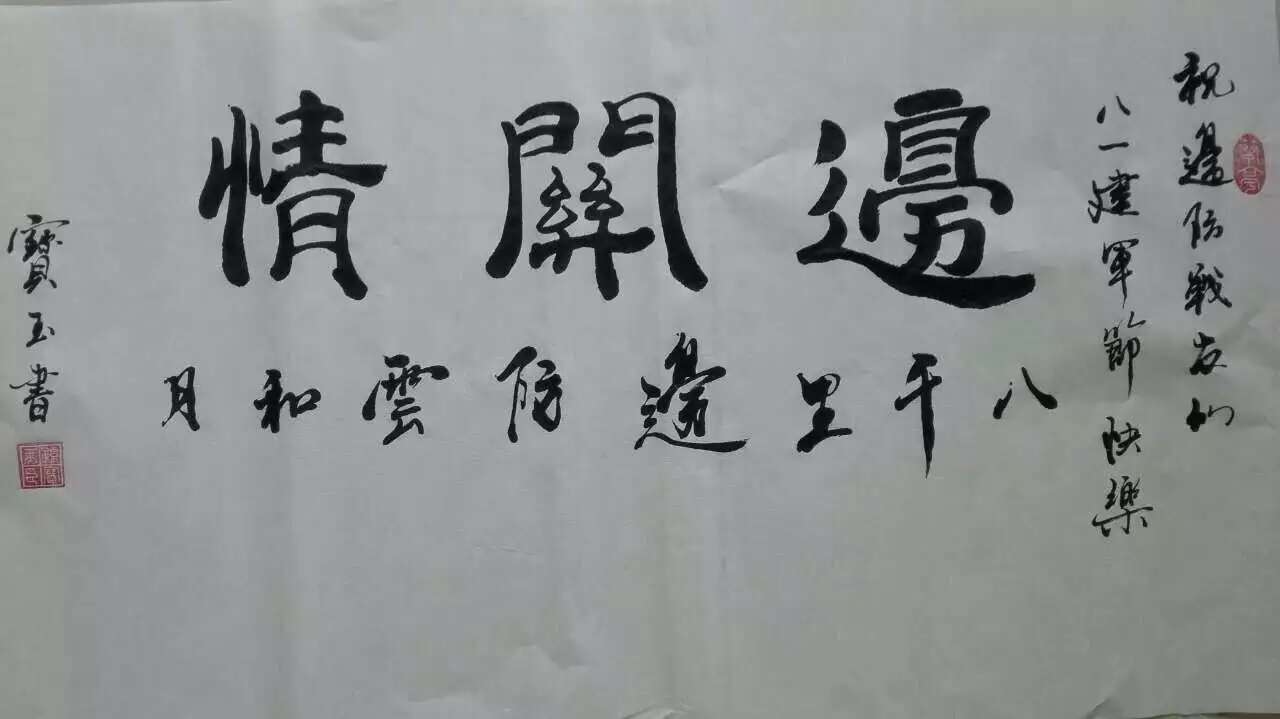 祝邊防战友们
八一建軍節快樂
邊關情
八千里邊防雲和月
寶玉書